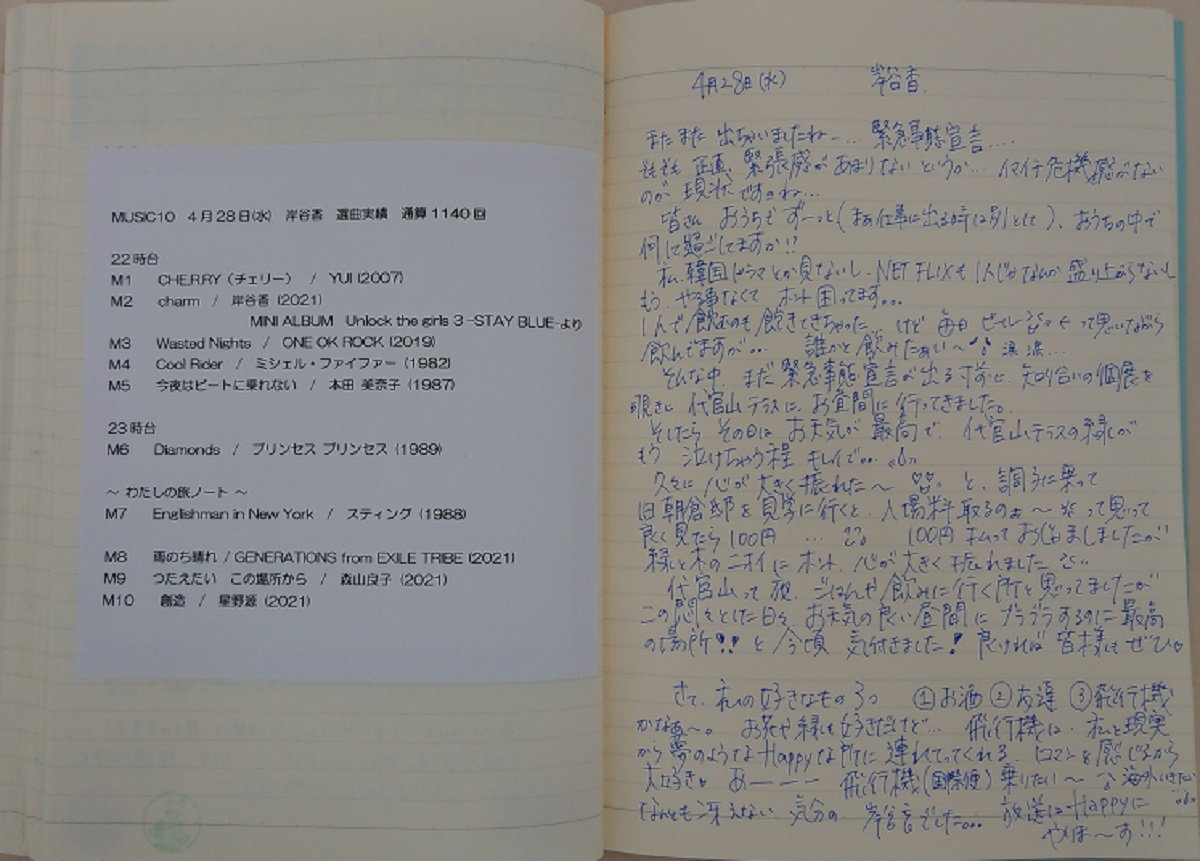 MUSIC10 4月28日(水) 岸谷香 選曲実績 通算1140回
22時台
M1 CHERRY(チェリー) / YUI(2007)
M2 charm / 岸谷香(2021)
MINI ALBUM Unlock the girls 3 -STAY BLUE-より
M3 Wasted Nights / ONE OK ROCK(2019)
M4 Cool Rider / ミシェル・ファイファー(1982)
M5 今夜はビートに乗れない / 本田 美奈子(1987)
23時台
M6 Diamonds / プリンセス プリンセス(1989)
～ わたしの旅ノート ～
M7 Englishman in New York / スティング(1988)
M8 雨のち晴れ / GENERATIONS from EXILE TRIBE(2021)
M9 つたえたい この場所から / 森山良子(2021)
M10 創造 / 星野源(2021)
4月28日(水) 岸谷香
またまた 出ちゃいましたねー… 緊急事態宣言…
そもそも 正直、緊張感が あまりない というか… イマイチ 危機感がない
のが 現状ですよね…
皆さん おうちで ずーっと(まぁ仕事に出る時は別として)、おうちの中で
何して過ごしてますか!?
私、韓国ドラマとか見ないし、NETFLIXも1人じゃなんか 盛り上がらないし
もう やる事なくて ホント 困ってます…
1人で飲むのも 飽きてきちゃった… けど 毎日 ビール って思いながら
飲んでますが… 誰かと飲みたぁい～ 涙 涙…
そんな中、まだ 緊急事態宣言が出る寸前に、知り合いの個展を
覗きに 代官山テラスに、お昼間に行ってきました。
そしたら その日は お天気が 最高で、代官山テラスの緑が
もう 泣けちゃう程 キレイで…
久々に 心が 大きく 振れた～ ♡♡ と、調子に乗って
旧朝倉邸を見学に行くと、入場料取るのぉ～ って思って
良く見たら 100円 … 100円払って おじゃましましたが
緑と木のニオイに ホント 心が 大きく 振れました
代官山って 夜、ごはんや飲みに行く所と思ってましたが
この悶々とした日々、お天気の良い昼間に ブラブラするのに 最高
の場所!! と 今頃 気付きました! 良ければ 皆様も ぜひ
さて、私の好きなもの3つ ①お酒 ②友達 ③飛行機
かなぁ～。 お花や緑も好きだけど… 飛行機は、私を現実
から 夢のような Happyな所に 連れてってくれる、ロマンを感じるから
大好き あーーー 飛行機(国際便)乗りたい～ 海外いきたい
なんとも冴えない 気分の 岸谷香でした… 放送はHappyに
やりまーす!!!